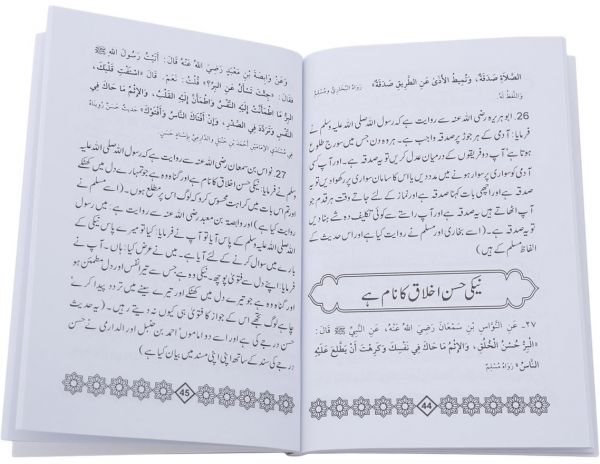 الصَّلَاةِ صَدَقَةٌ، وَتُمِيطُ الْأَذَى عَنِ الطَّرِيقِ صَدَقَةٌ» رَوَاهُ الْبُخَارِيُّ وَمُسْلِمٌ
وَاللَّفْظُ لَهُ
26. ابو ہریرہ رضی اللہ عنہ سے روایت ہے کہ رسول اللہ صلی اللہ علیہ وسلم نے
فرمایا: آدمی کے ہر جوڑ پر صدقہ واجب ہے۔ ہر وہ دن جس میں سورج طلوع
ہوتا ہے آپ دو فریقوں کے درمیان عدل کریں تو یہ صدقہ ہے۔ اور آپ کسی
آدمی کو سواری پر سوار ہونے میں مدد دیں یا اس کا سامان سواری پر رکھوا دیں تو یہ
صدقہ ہے اور اچھی بات کہنا صدقہ ہے اور نماز کے لئے جاتے وقت ہر قدم جو
آپ اٹھاتے ہیں یہ صدقہ ہے اور آپ راستے سے کوئی تکلیف دہ شے ہٹا دیں
تو یہ صدقہ ہے۔ (اسے بخاری اور مسلم نے روایت کیا ہے اور اس حدیث کے
الفاظ مسلم کے ہیں)
نیکی حسن اخلاق کا نام ہے
٢٧- عَنِ النَّوَّاسِ بْنِ سَمْعَانَ رَضِيَ اللَّهُ عَنْهُ، عَنِ النَّبِيِّ ﷺ قَالَ:
«الْبِرُّ حُسْنُ الْخُلُقِ، وَالْإِثْمُ مَا حَاكَ فِي نَفْسِكَ وَكَرِهْتَ أَنْ يَطَّلِعَ عَلَيْهِ
النَّاسُ» رَوَاهُ مُسْلِمٌ
44
وَعَنْ وَابِصَةَ بْنِ مَعْبَدٍ رَضِيَ اللَّهُ عَنْهُ قَالَ: أَتَيْتُ رَسُولَ اللَّهِ ﷺ
فَقَالَ: «جِئْتَ تَسْأَلُ عَنِ الْبِرِّ؟» قُلْتُ: نَعَمْ. قَالَ: «اسْتَفْتِ قَلْبَكَ،
الْبِرُّ مَا اطْمَأَنَّتْ إِلَيْهِ النَّفْسُ وَاطْمَأَنَّ إِلَيْهِ الْقَلْبُ، وَالْإِثْمُ مَا حَاكَ فِي
النَّفْسِ وَتَرَدَّدَ فِي الصَّدْرِ، وَإِنْ أَفْتَاكَ النَّاسُ وَأَفْتَوْكَ» حَدِيثٌ حَسَنٌ رُوِّينَاهُ
فِي مُسْنَدَيِ الْإِمَامَيْنِ أَحْمَدَ بْنِ حَنْبَلٍ وَالدَّارِمِيِّ بِإِسْنَادٍ حَسَنٍ
27. نواس بن سمعان رضی اللہ عنہ سے روایت ہے کہ رسول اللہ صلی اللہ علیہ
وسلم نے فرمایا: نیکی حسن اخلاق کا نام ہے اور گناہ وہ ہے جو تمہارے دل میں کھٹکے
اور تم اس بات میں کراہت محسوس کرو کہ لوگ اس پر مطلع ہوں۔ (اسے مسلم نے
روایت کیا ہے) اور وابصۃ بن معبد رضی اللہ عنہ سے روایت ہے: میں رسول
اللہ صلی اللہ علیہ وسلم کے پاس آیا تو آپ نے فرمایا: کیا تو میرے پاس نیکی کے
بارے میں سوال کرنے کے لئے آیا ہے۔ میں نے عرض کیا: ہاں۔ آپ نے
فرمایا: اپنے دل سے فتویٰ پوچھ۔ نیکی وہ ہے جس سے تیرا نفس اور دل مطمئن ہو
اور گناہ وہ ہے جو تیرے دل میں کھٹکے اور تیرے سینے میں تردد پیدا کرے،
چاہے لوگ تجھے اس کے جواز کا فتویٰ ہی کیوں نہ دیتے رہیں۔ (یہ حدیث
حسن درجے کی ہے اور اسے دو اماموں احمد بن حنبل اور الداری نے حسن
درجے کی سند کے ساتھ اپنی اپنی مسند میں بیان کیا ہے)
45